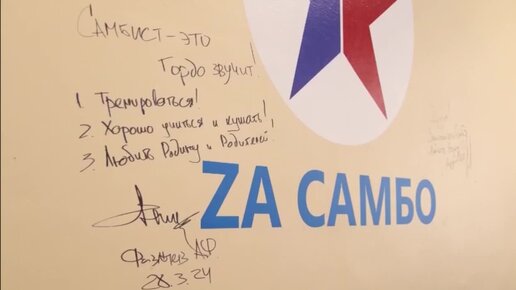 Самбист – это
Гордо звучит!
1. Тренироваться!
2. Хорошо учиться и кушать!
3. Любить Родину и Родителей!
ZА САМБО
А.Ф.
28.3.24